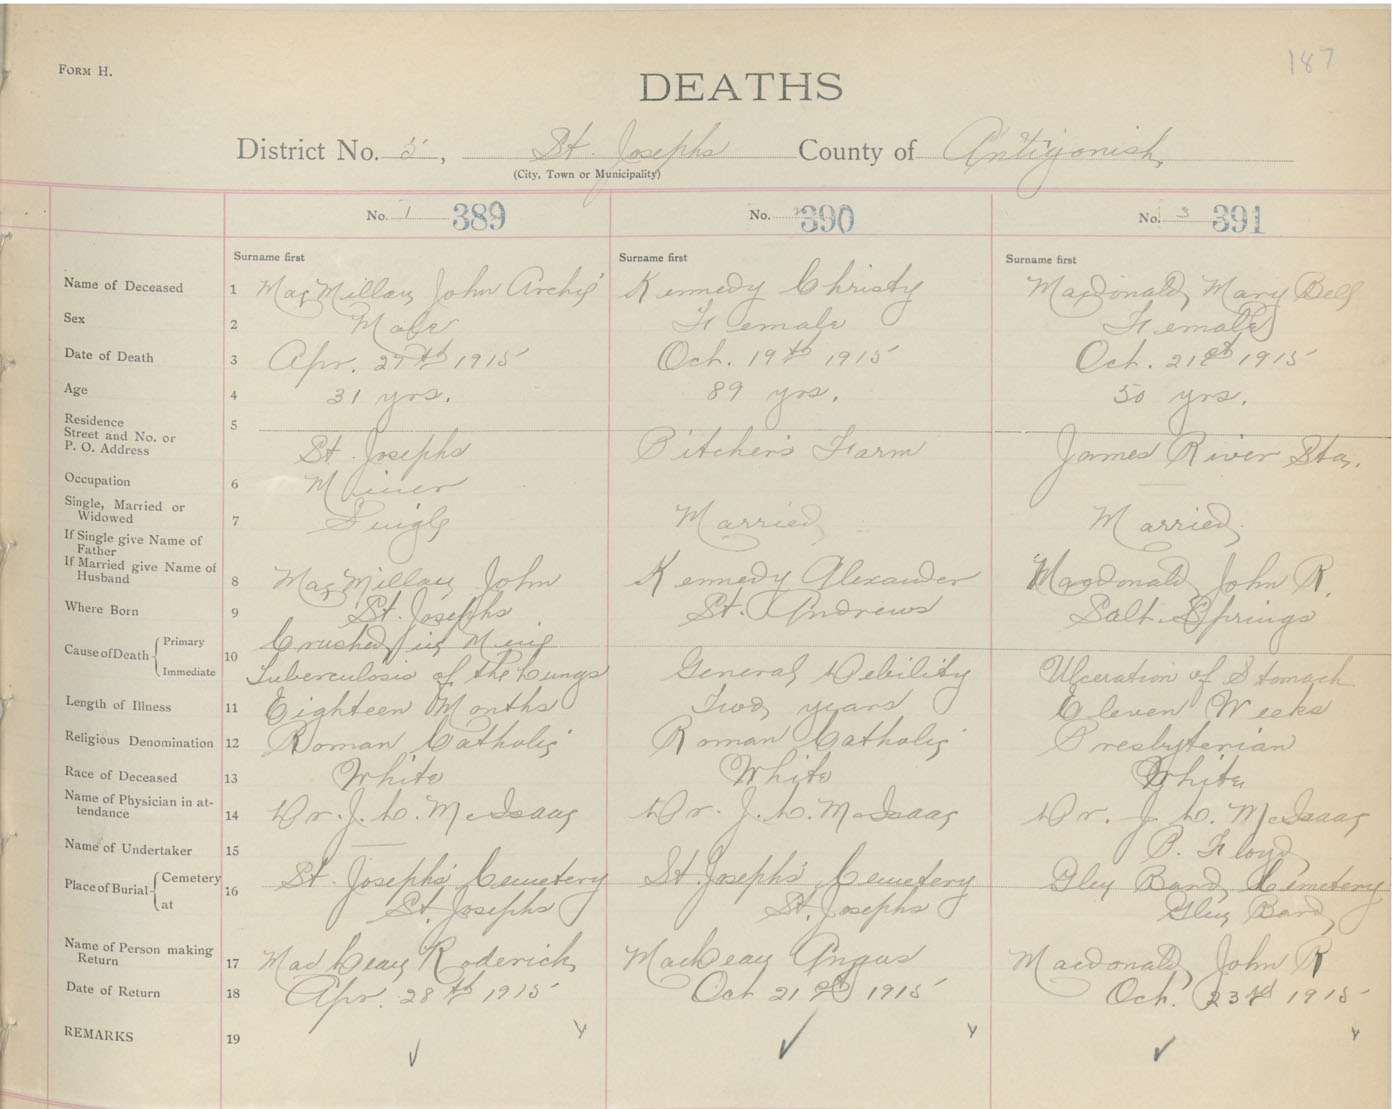 187
FORM H.
DEATHS
District No. 5, St. Josephs County of Antigonish
(City, Town or Municipality)
No. 1 389 No. 2 390 No. 3 391
Surname first Surname first Surname first
Name of Deceased 1 MacMillan John Archie Kennedy Christy Macdonald Mary Bell
Sex 2 Male Female Female
Date of Death 3 Apr. 27th 1915 Oct. 19th 1915 Oct. 21st 1915
Age 4 31 yrs. 89 yrs. 50 yrs.
Residence 5
Street and No. or
P. O. Address St. Josephs Pitcher's Farm James River Sta.
Occupation 6 Miner
Single, Married or
Widowed 7 Single Married Married
If Single give Name of
Father
If Married give Name of
Husband 8 MacMillan John Kennedy Alexander Macdonald John R.
Where Born 9 St. Josephs St. Andrews Salt Springs
Cause of Death Primary 10 Crushed in Mine
Immediate Tuberculosis of the Lungs General Debility Ulceration of Stomach
Length of Illness 11 Eighteen Months Two years Eleven Weeks
Religious Denomination 12 Roman Catholic Roman Catholic Presbyterian
Race of Deceased 13 White White White
Name of Physician in at-
tendance 14 Dr. J. L. McIsaac Dr. J. L. McIsaac Dr. J. L. McIsaac
Name of Undertaker 15 P. Floyd
Place of Burial Cemetery 16 St. Joseph's Cemetery St. Joseph's Cemetery Glen Bard Cemetery
at St. Josephs St. Josephs Glen Bard
Name of Person making
Return 17 MacLean Roderick MacLean Angus Macdonald John R
Date of Return 18 Apr. 28th 1915 Oct 21st 1915 Oct. 23rd 1915
REMARKS 19